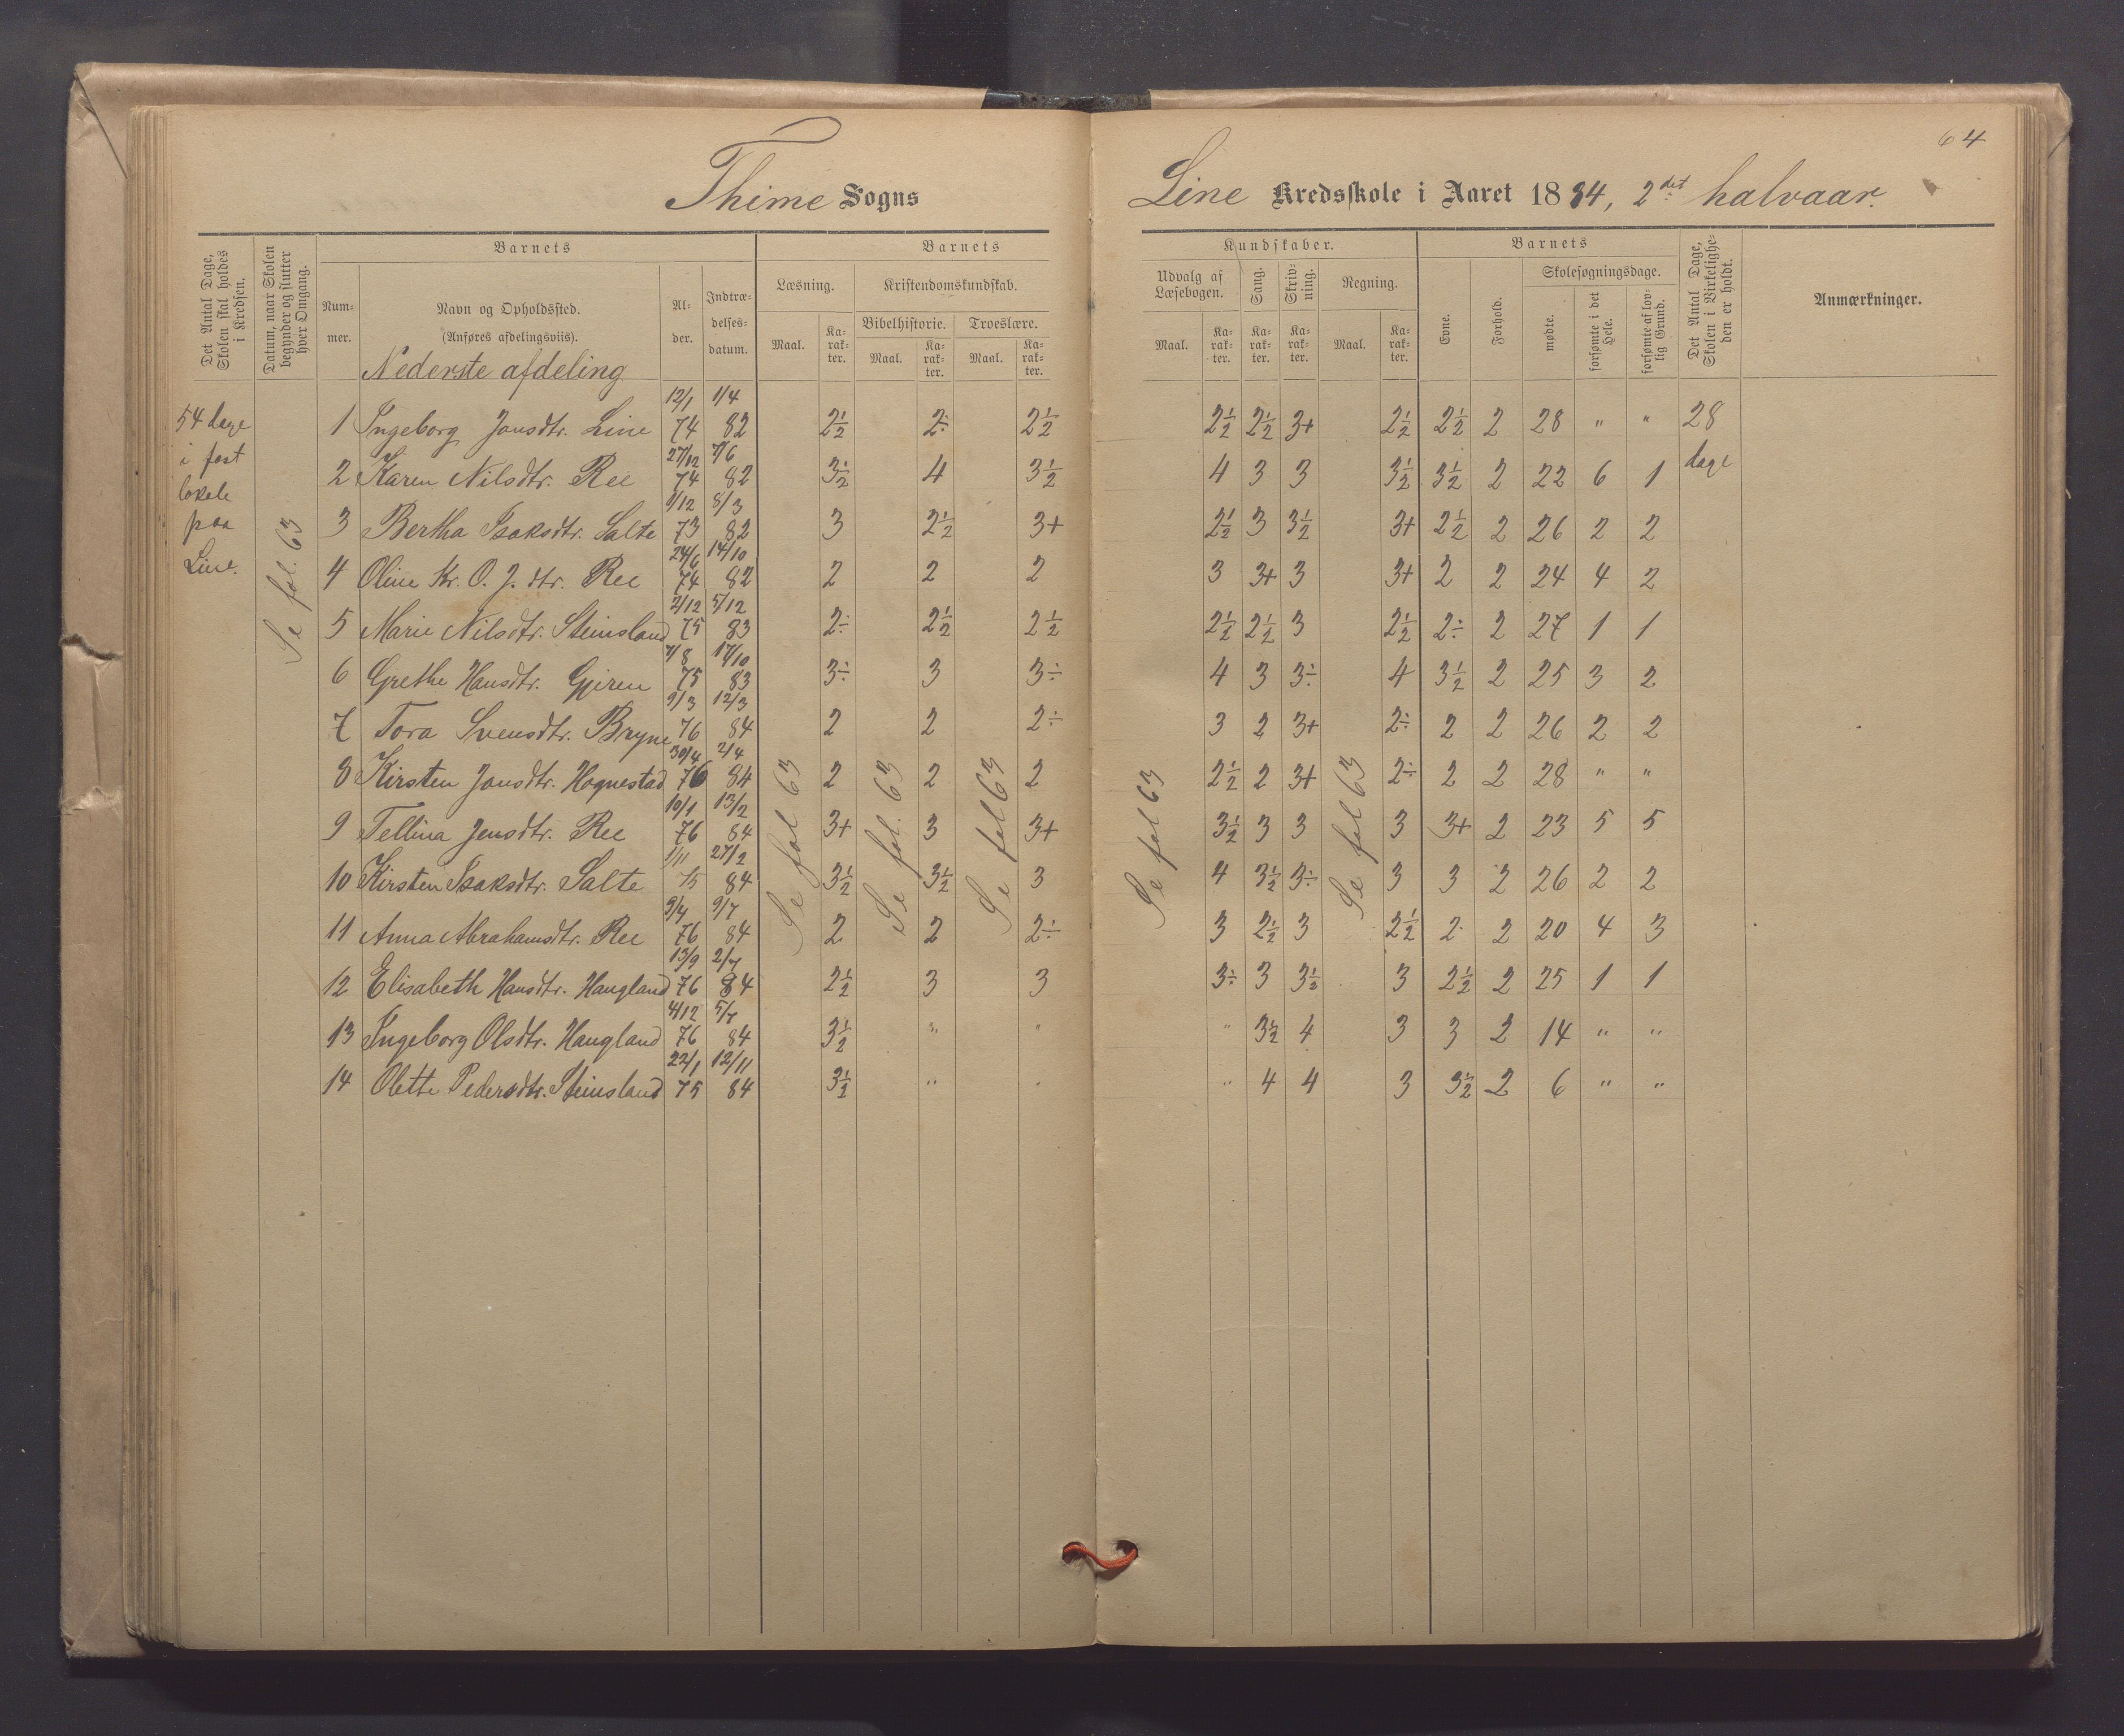 64
Thime Sogns Line Kredsskole i Aaret 1884, 2det halvaar.
Det Antal Dage, Skolen skal holdes i Kredsen.
Datum, naar Skolen begynder og slutter hver Omgang.
Barnets
Nummer.
Navn og Opholdssted.
(Anføres afdelingsviis).
Alder.
Indtrædelsesdatum.
Barnets
Læsning.
Maal.
Karakter.
Kristendomskundskab.
Bibelhistorie.
Maal.
Karakter.
Troeslære.
Maal.
Karakter.
Kundskaber.
Udvalg af Læsebogen.
Maal.
Karakter.
Sang.
Karakter.
Skrivning.
Karakter.
Regning.
Maal.
Karakter.
Barnets
Evne.
Forhold.
Skolesøgningsdage.
mødte.
forsømte i det Hele.
forsømte af lovlig Grund.
Det Antal Dage, Skolen i Virkeligheden er holdt.
Anmærkninger.
Nederste afdeling
54 dage
i fast
lokale
paa
Line.
Se fol. 63
1 Ingeborg Jonsdtr. Line 12/1 74 1/4 82 2½ 2÷ 2½ 2½ 2½ 3+ 2½ 2½ 2 28 " " 28 dage
2 Karen Nilsdtr. Ree 27/12 74 7/6 82 3½ 4 3½ 4 3 3 3½ 3½ 2 22 6 1
3 Bertha Isaksdtr. Salte 1/12 73 8/3 82 3 2½ 3+ 2½ 3 3½ 3+ 2½ 2 26 2 2
4 Oline Kr. O. J. dtr. Ree 24/6 74 14/10 82 2 2 2 3 3+ 3 3+ 2 2 24 4 2
5 Marie Nilsdtr. Steinsland 2/12 75 5/12 83 2÷ 2½ 2½ 2½ 2½ 3 2½ 2÷ 2 27 1 1
6 Grethe Hansdtr. Gjeren 7/8 75 17/10 83 3÷ 3 3÷ 4 3 3÷ 4 3½ 2 25 3 2
7 Tora Svensdtr. Bryne 9/3 76 12/3 84 2 2 2÷ 3 2 3+ 2÷ 2 2 26 2 2
8 Kirsten Jonsdtr. Hognestad 30/4 76 2/4 84 2 2 2 2½ 2 3+ 2÷ 2 2 28 " "
9 Tellina Jensdtr. Ree 10/1 76 13/2 84 3+ 3 3+ 3½ 3 3 3 3+ 2 23 5 5
10 Kirsten Isaksdtr. Salte 1/11 75 27/2 84 3½ 3½ 3 4 3½ 3÷ 3 3 2 26 2 2
11 Anna Abrahamsdtr. Ree 9/4 76 9/7 84 2 2 2÷ 3 2½ 3 2½ 2 2 20 4 3
12 Elisabeth Hansdtr. Haugland 13/9 76 2/7 84 2½ 3 3 3÷ 3 3½ 3 2½ 2 25 1 1
13 Ingeborg Olsdtr. Haugland 4/12 76 5/7 84 3½ " " " 3½ 4 3 3 2 14 " "
14 Olette Pedersdtr. Steinsland 22/1 75 12/11 84 3½ " " " 4 4 3 3½ 2 6 " "
Se fol 63
Se fol. 63
Se fol 63
Se fol 63
Se fol 63